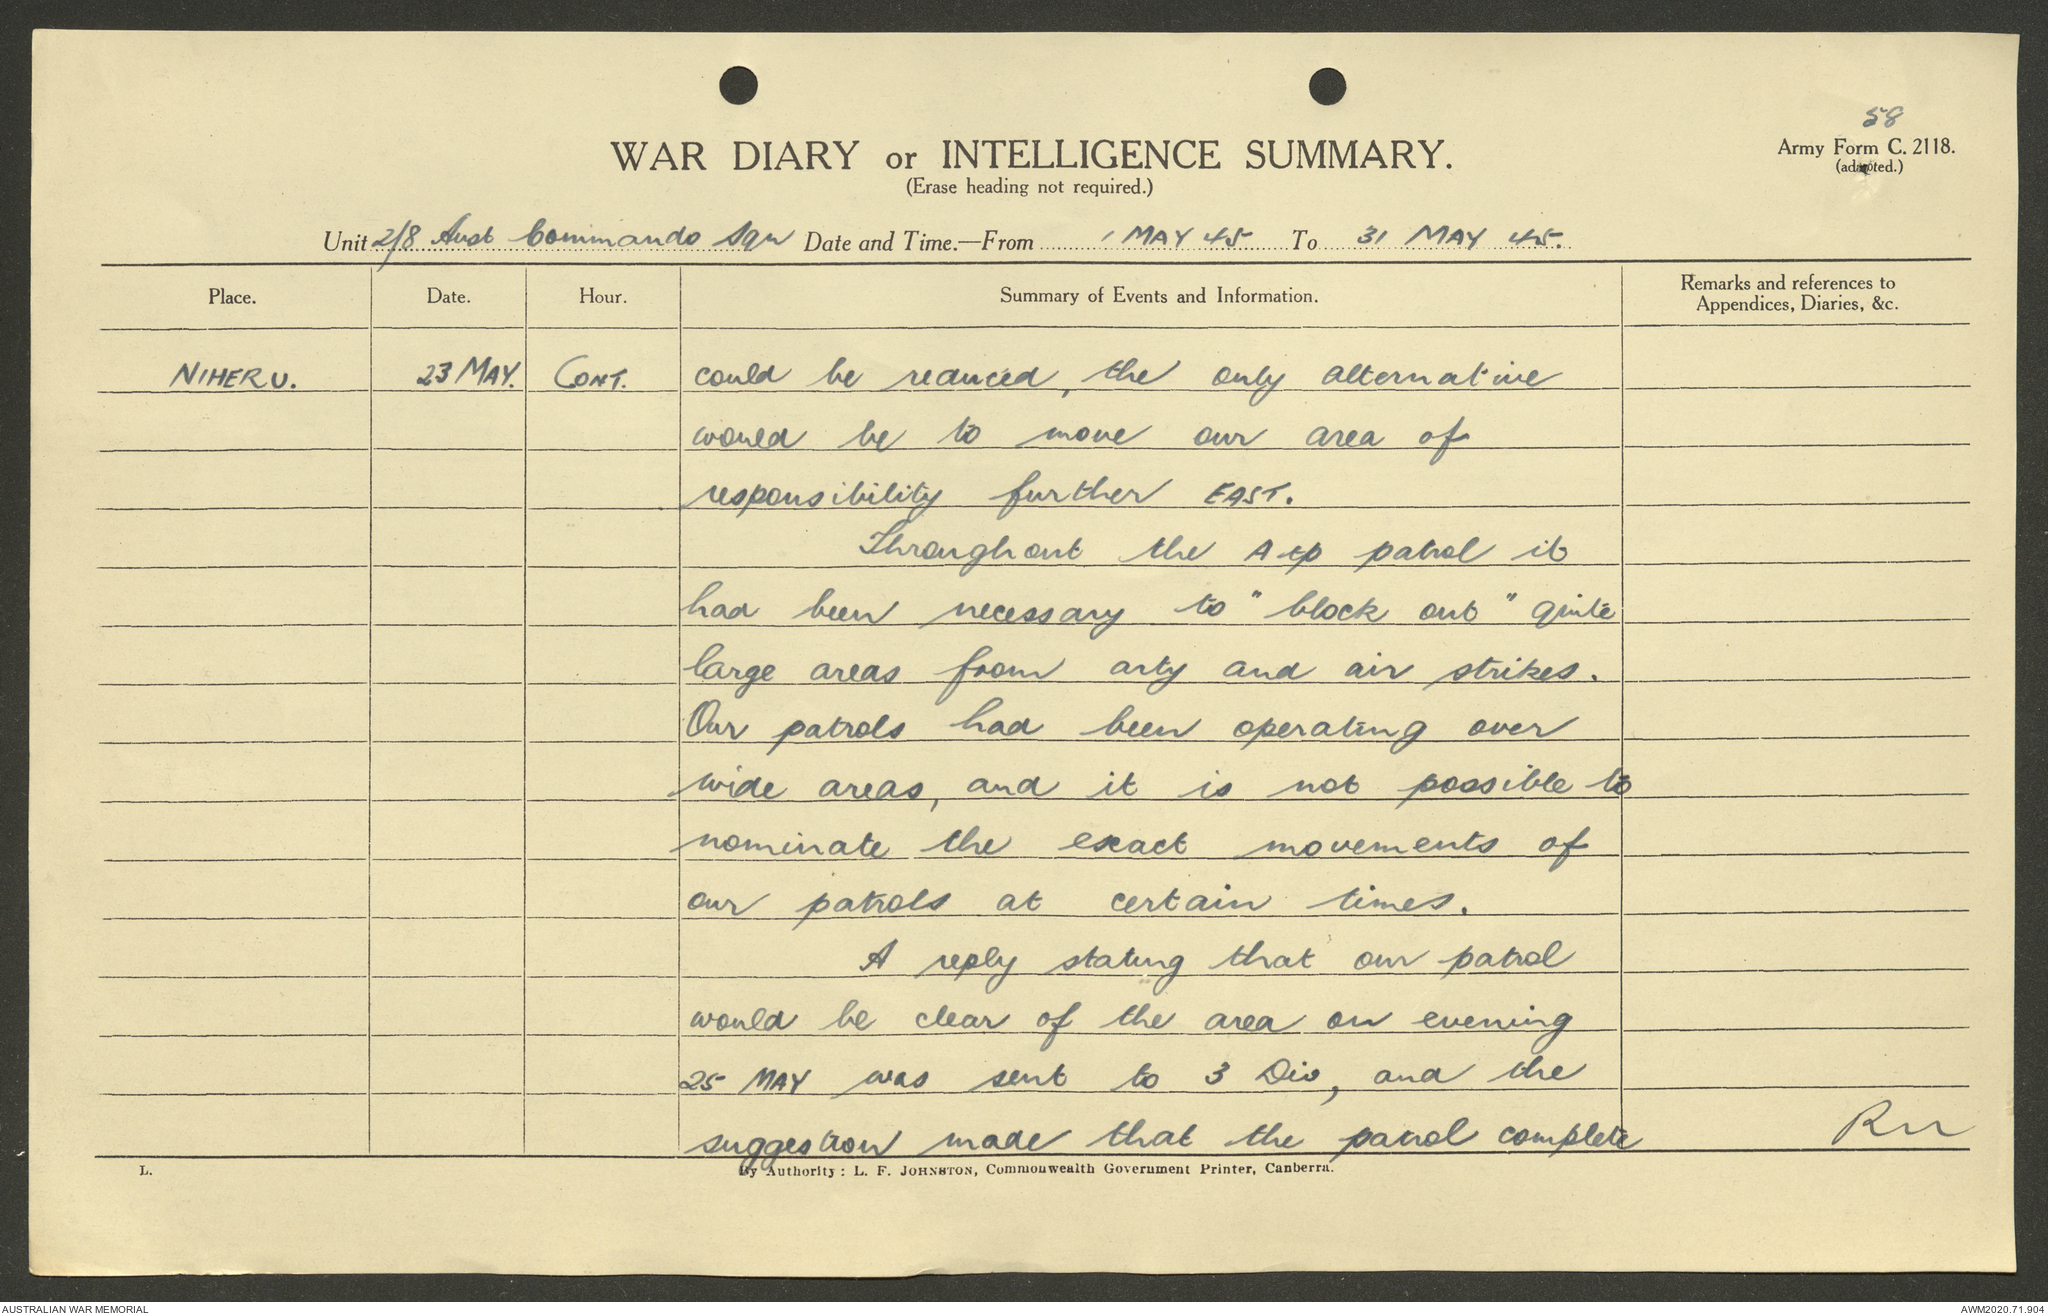 58
Army Form C. 2118.
(adapted.)
WAR DIARY or INTELLIGENCE SUMMARY.
(Erase heading not required.)
Unit 2/8 Aust Commando Sqn Date and Time.—From 1 MAY 45 To 31 MAY 45.
Place. Date. Hour. Summary of Events and Information. Remarks and references to Appendices, Diaries, &c.
NIHERU. 23 MAY. CONT. could be reduced, the only alternative
would be to move our area of
responsibility further EAST.
Throughout the A tp patrol it
had been necessary to "block out" quite
large areas from arty and air strikes.
Our patrols had been operating over
wide areas, and it is not possible to
nominate the exact movements of
our patrols at certain times.
A reply stating that our patrol
would be clear of the area on evening
25 MAY was sent to 3 Div, and the
suggestion made that the patrol complete
L. By Authority: L. F. JOHNSTON, Commonwealth Government Printer, Canberra.
AUSTRALIAN WAR MEMORIAL AWM2020.71.904